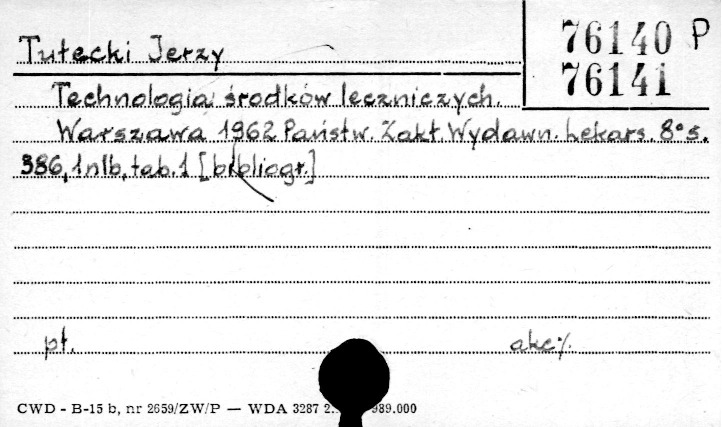 Tułecki Jerzy
76140 P
76141
Technologia środków leczniczych.
Warszawa 1962 Państw. Zakł. Wydawn. Lekars. 8° s.
386, 1 nlb, tab. 1 [bibliogr.]
pł. akc./.
CWD - B-15 b, nr 2659/ZW/P — WDA 3287 2. 989.000